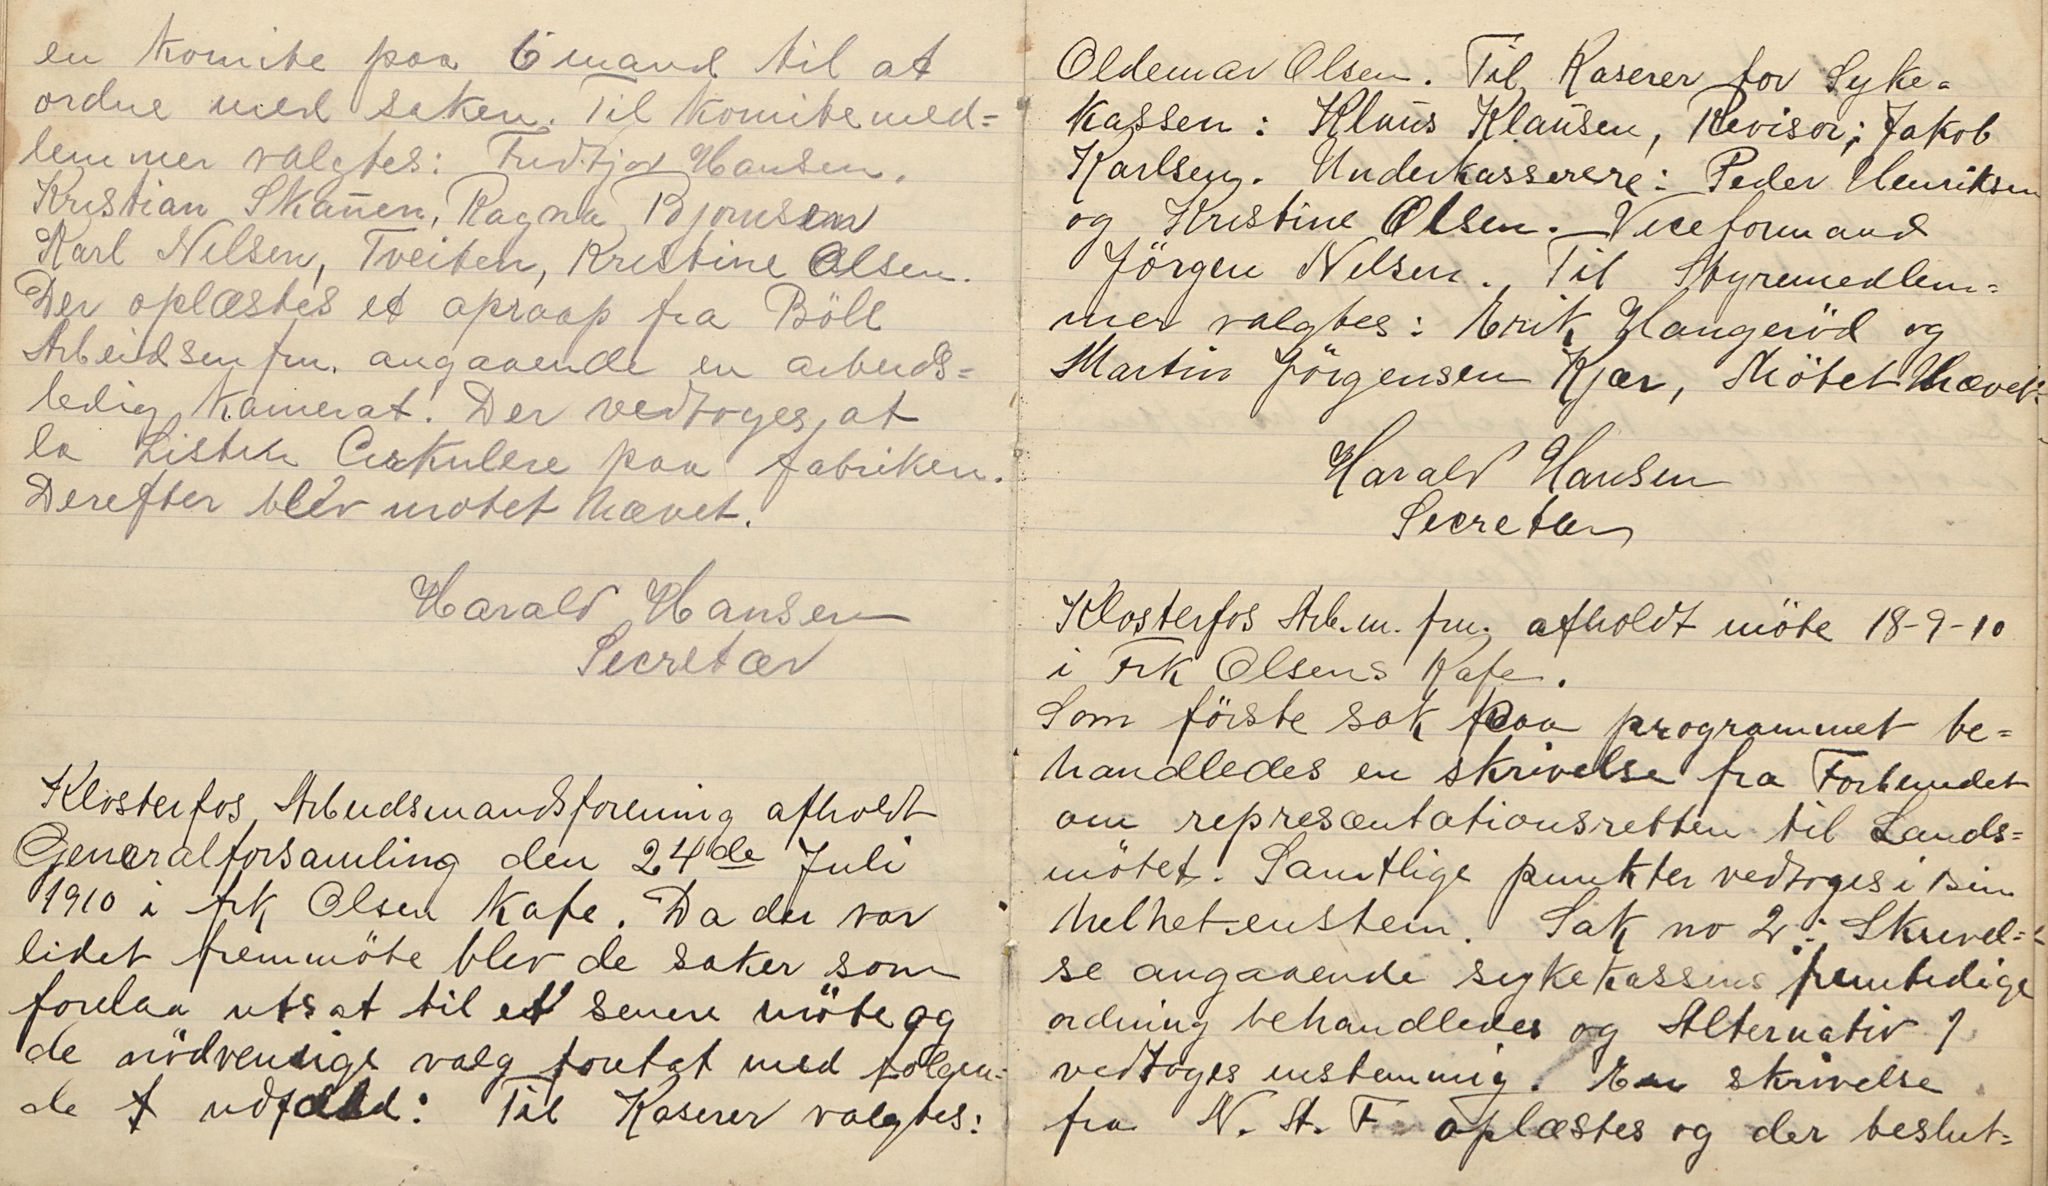 en komite paa 6 mand til at
ordne med saken. Til komitemed=
lemmer valgtes: Fridtjov Hansen.
Kristian Skauen, Ragna Bjørnsen
Karl Nilsen, Tveiten, Kristine Olsen.
Der oplæstes et opraap fra Böle
Arbeidsm frn. angaaende en arbeids=
ledig kamerat. Der vedtoges at
la Listen Cirkulere paa fabriken.
Derefter blev motet hævet.
Harald Hansen
Secretær
Klosterfos Arbeidsmandsforening afholdt
Generalforsamling den 24de Juli
1910 i frk Olsen Kafe. Da der var
lidet fremmöte blev de saker som
forelaa utsat til et senere möte og
de nödvendige valg foretat med følgen=
de udfald: Til Kaserer valgtes:
Oldemar Olsen. Til Kaserer for Syke=
kassen: Klaus Klausen, Revisor; Jakob
Karlsen. Underkasserere: Peder Henriksen
og Kristine Olsen. Viceformand
Jörgen Nilsen. Til Styremedlem=
mer valgtes: Erik Haugeröd og
Martin Jörgensen Kjær, Mötet hævet.
Harald Hansen
Secretær
Klosterfos Arb.m. frn. afholdt möte 18-9-10
i Frk Olsens Kafe.
Som förste sak paa programmet be=
handledes en skrivelse fra Forbundet
om repræsentationsretten til Lands=
mötet. Samtlige punkter vedtoges i sin
helhet enstem. Sak no 2: Skrivel=
se angaaende sykekassens fremtidige
ordning behandledes og Alternativ 1
vedtoges enstemmig. En skrivelse
fra N. A. F oplæstes og der beslut=